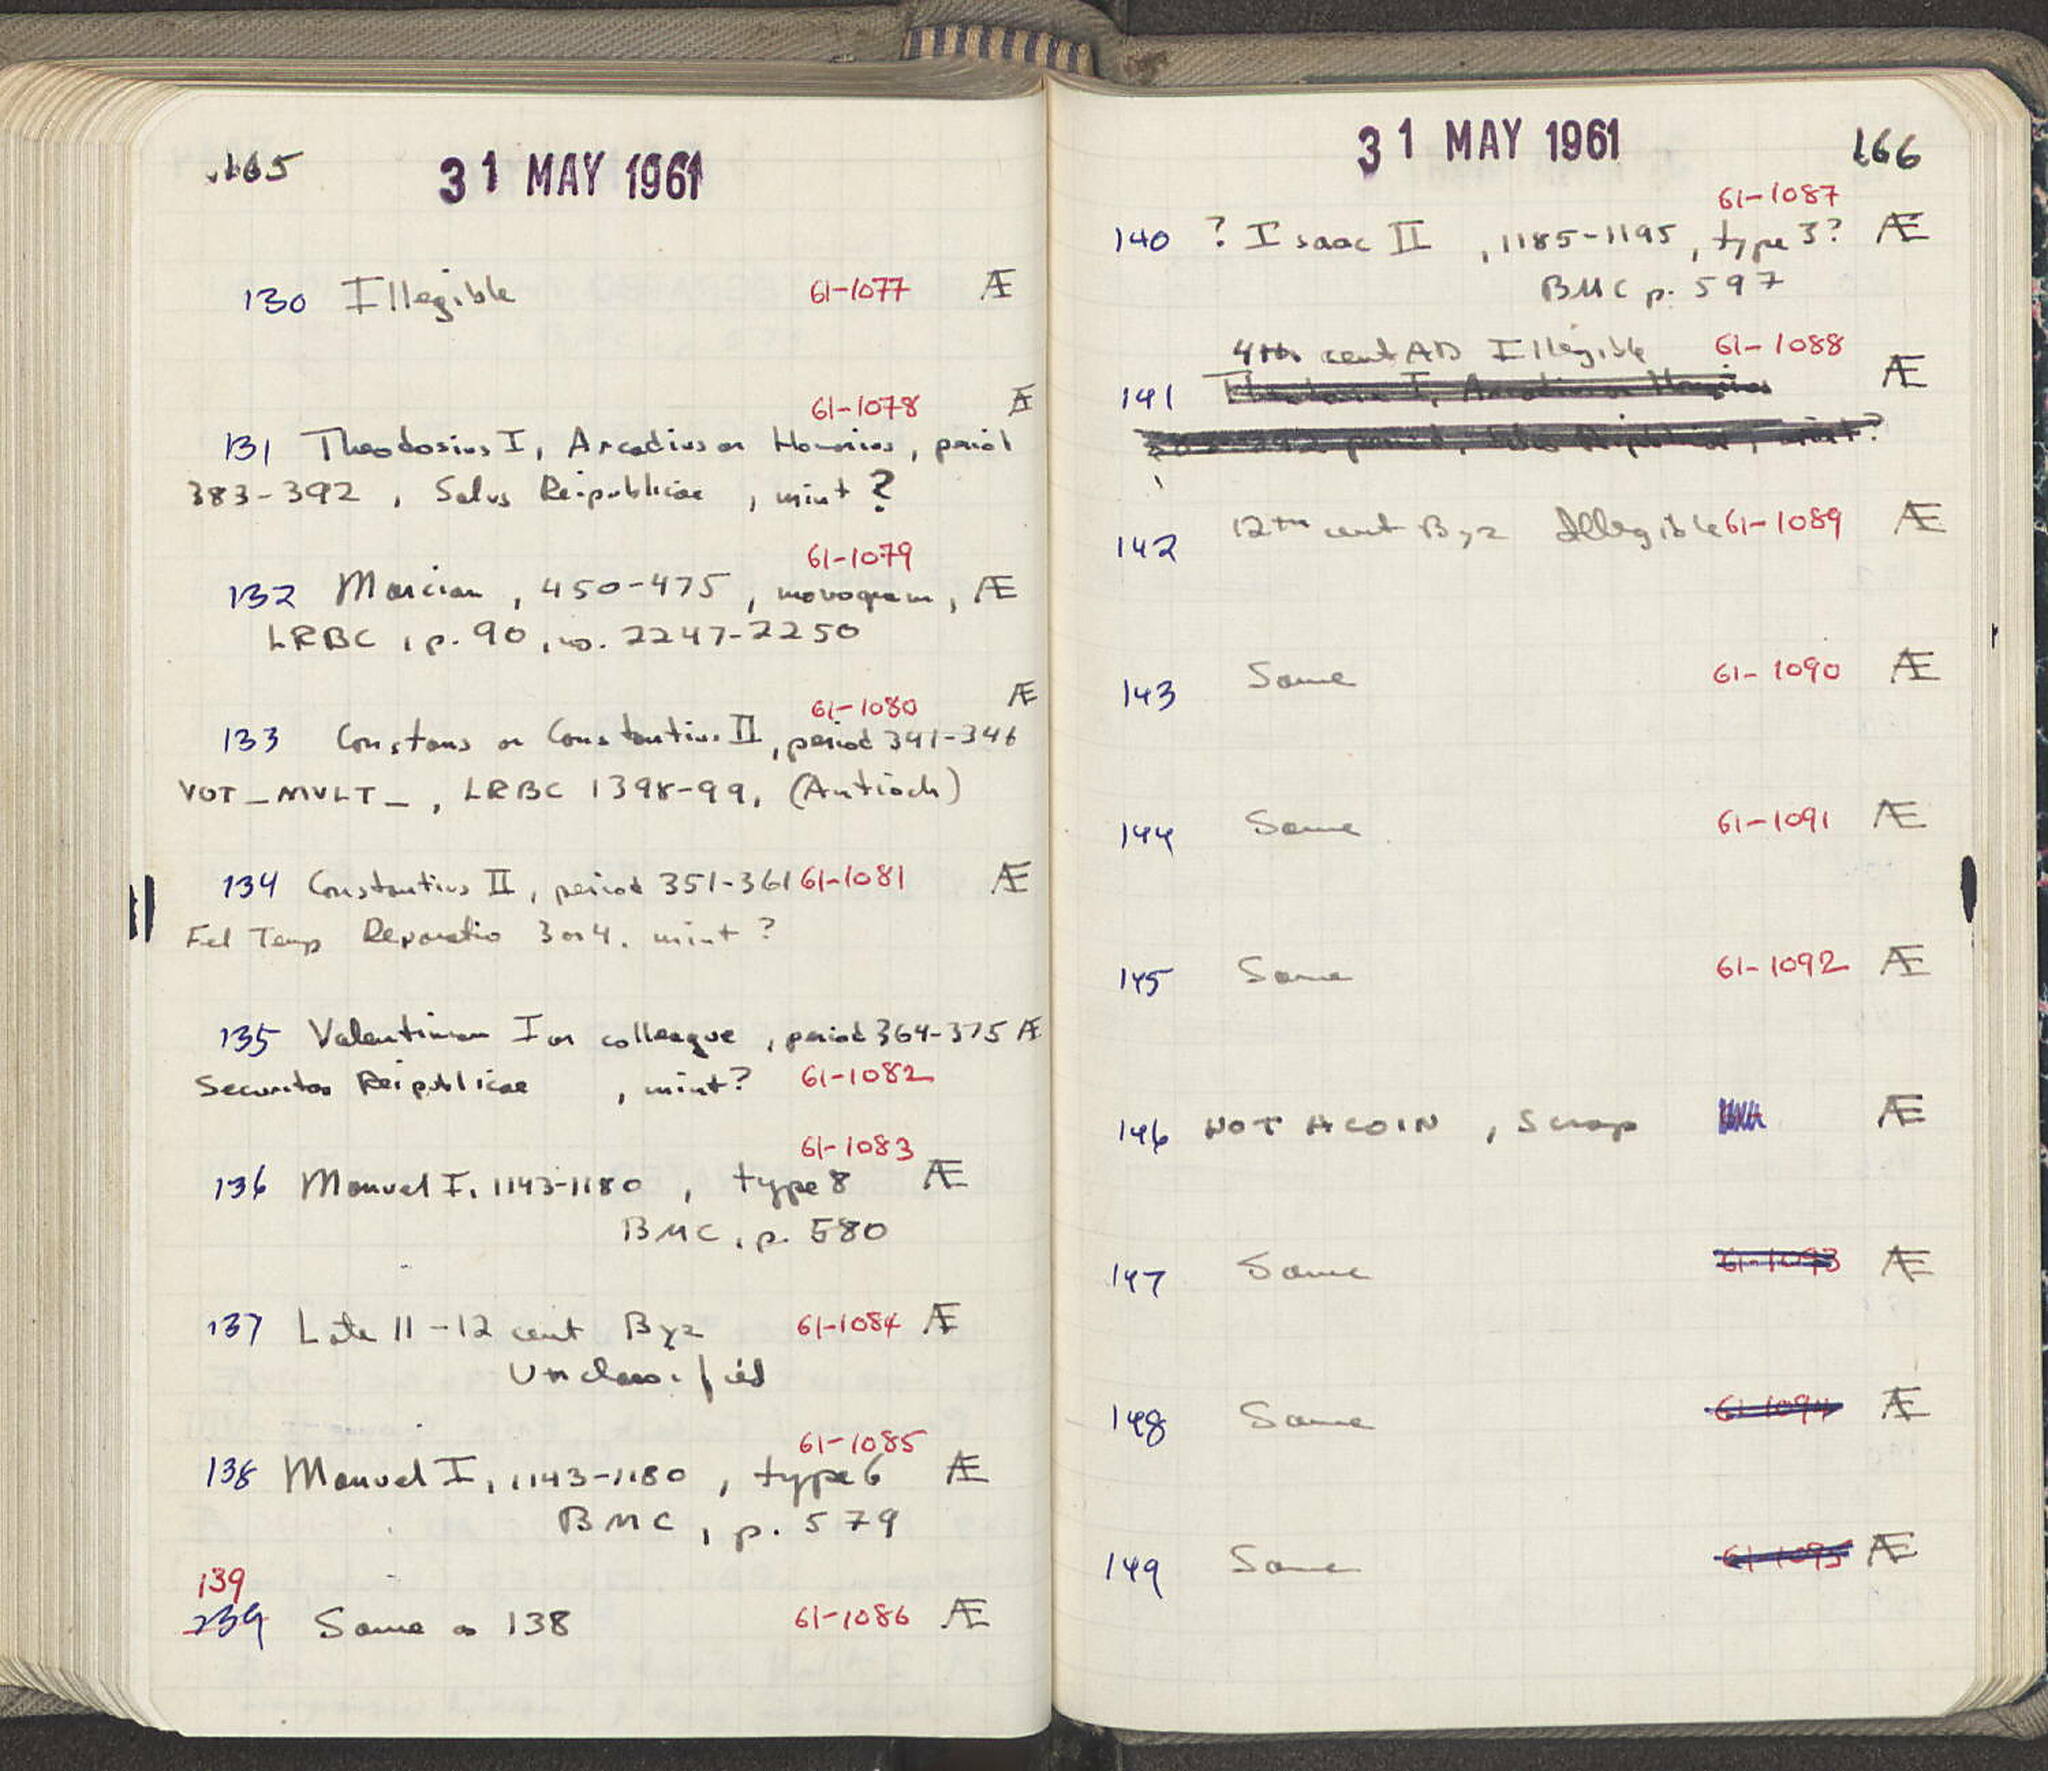 165
31 MAY 1961
130 Illegible 61-1077 Æ
61-1078 Æ
131 Theodosius I, Arcadius or Honorius, period
383-392, Salus Reipublicae, mint?
61-1079
132 Marcian, 450-475, monogram, Æ
LRBC, p. 90, no. 2247-2250
61-1080 Æ
133 Constans or Constantius II, period 341-346
VOT_MVLT_, LRBC 1398-99, (Antioch)
134 Constantius II, period 351-361 61-1081 Æ
Fel Temp Reparatio 3 or 4. mint?
135 Valentinian I or colleague, period 364-375 Æ
Securitas Reipublicae, mint? 61-1082
61-1083
136 Manuel I, 1143-1180, type 8 Æ
BMC, p. 580
137 Late 11-12 cent Byz 61-1084 Æ
Unclassified
61-1085
138 Manuel I, 1143-1180, type 6 Æ
BMC, p. 579
139
239 Same as 138 61-1086 Æ
31 MAY 1961 166
61-1087
140 ? Isaac II, 1185-1195, type 3? Æ
BMC p. 597
4th cent AD Illegible 61-1088
141 Theodosius I, Arcadius or Honorius Æ
383-392 period, Salus Reipublicae, mint?
142 12th cent Byz Illegible 61-1089 Æ
143 Same 61-1090 Æ
144 Same 61-1091 Æ
145 Same 61-1092 Æ
146 NOT A COIN, Scrap Æ
147 Same 61-1093 Æ
148 Same 61-1094 Æ
149 Same 61-1095 Æ